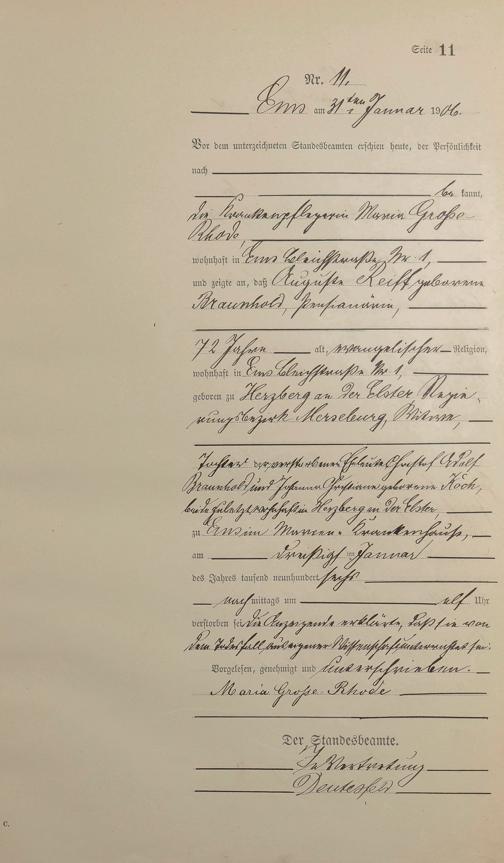 Seite 11
Nr. 11.
Ems am 31ten Januar 1906.
Vor dem unterzeichneten Standesbeamten erschien heute, der Persönlichkeit
nach
be kannt,
die Krankenpflegerin Maria Große-
Rhode,
wohnhaft in Ems Bleichstraße Nr. 1,
und zeigte an, daß Auguste Reift geborene
Braunhold, Pensionärin,
72 Jahre alt, evangelischer Religion,
wohnhaft in Ems Bleichstraße Nr. 1,
geboren zu Herzberg an der Elster Regie-
rungsbezirk Merseburg, Witwe,
Tochter der verstorbenen Eheleute Christof Adolf
Braunhold und Johanna Christiane geborene Koch,
beide zuletzt wohnhaft in Herzberg an der Elster,
zu Ems im Marien-Krankenhause,
am dreißigsten Januar
des Jahres tausend neunhundert sechs
nach mittags um elf Uhr
verstorben sei. Die Anzeigende erklärte, daß sie von
dem Todesfall aus eigener Wissenschaft unterrichtet sei.
Vorgelesen, genehmigt und unterschrieben.
Maria Große-Rhode
Der Standesbeamte.
In Vertretung
c.